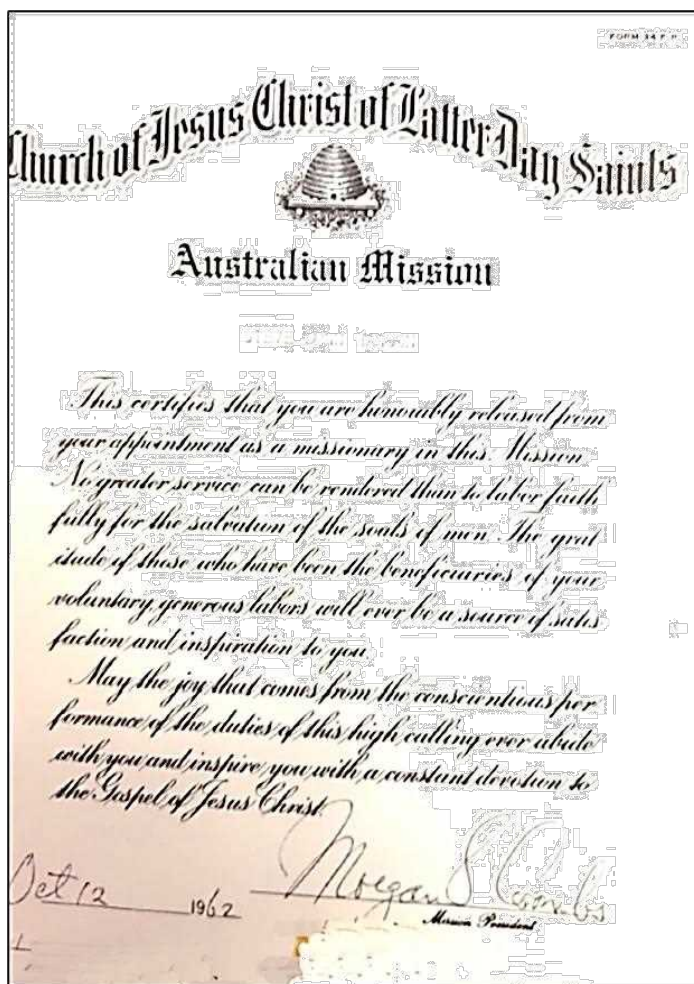 FORM 34 F P
Church of Jesus Christ of Latter Day Saints
Australian Mission
This certifies that you are honorably released from
your appointment as a missionary in this Mission
No greater service can be rendered than to labor faith
fully for the salvation of the souls of men. The grat
itude of those who have been the beneficiaries of your
voluntary, generous labors will ever be a source of satis
faction and inspiration to you
May the joy that comes from the conscientious per
formance of the duties of this high calling ever abide
with you and inspire you with a constant devotion to
the Gospel of Jesus Christ.
Oct 12 1962 Morgan S Coombs
Mission President